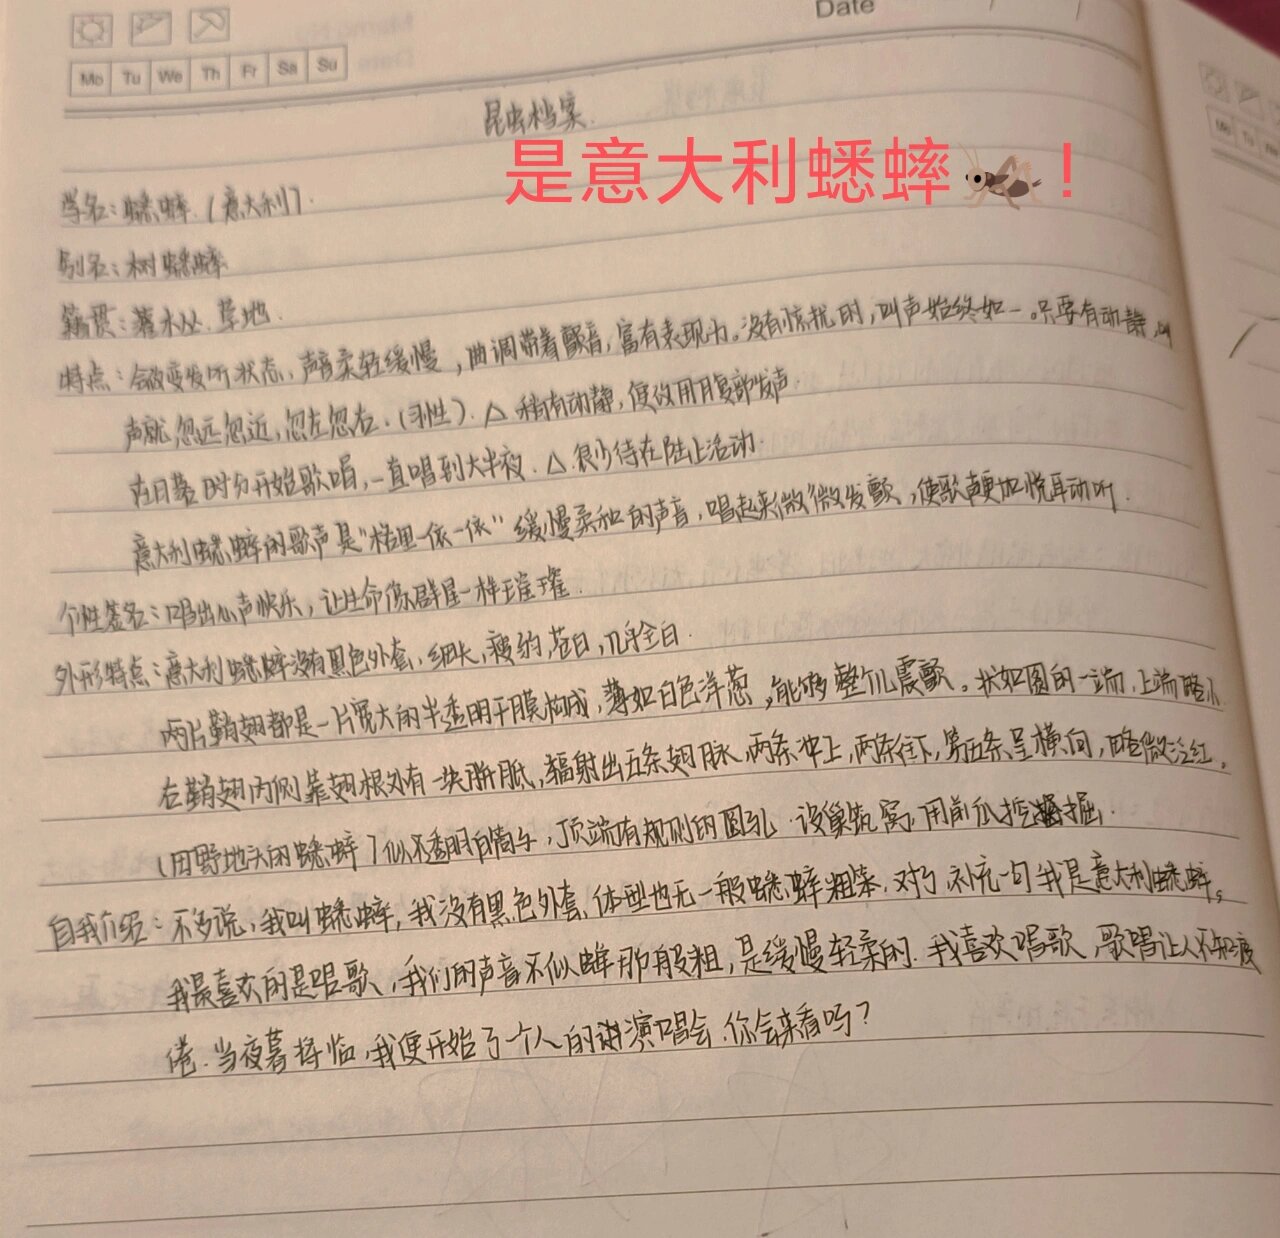 Date
Mo Tu We Th Fr Sa Su
昆虫档案.
是意大利蟋蟀🦗！
学名：蟋蟀.（意大利）.
别名：树蟋蟀
籍贯：灌木丛.草地.
特点：会改变发听状态、声音柔轻缓慢，曲调带着颤音，富有表现力。没有惊扰时，叫声始终如一。只要有动静，叫
声就忽远忽近，忽左忽右.（习性）.△ 稍有动静，便改用腹部发声.
在日落时分开始歌唱，一直唱到大半夜.△.很少待在陆上活动.
意大利蟋蟀的歌声是“格里-依-依”缓慢柔和的声音，唱起来微微发颤，使歌声更加悦耳动听.
个性签名：唱出心声快乐，让生命像群星一样璀璨.
外形特点：意大利蟋蟀没有黑色外套，细长，瘦弱，苍白，几乎全白.
两片鞘翅都是一片宽大的半透明干膜构成，薄如白色洋葱，能够整个儿震颤。状如圆的一端，上端略小.
右鞘翅内侧靠翅根处有一块胼胝，辐射出五条翅脉，两条冲上，两条往下，第五条呈横向，略微泛红。
（田野地头的蟋蟀）似不透明白筒子，顶端有规则的圆孔.设巢筑窝，用前爪挖掘.
自我介绍：不多说，我叫蟋蟀，我没有黑色外套，体型也无一般蟋蟀粗笨，对了，补充一句我是意大利蟋蟀，
我最喜欢的是唱歌，我们的声音不似蝉那般粗，是缓慢轻柔的.我喜欢唱歌，歌唱让人不知疲
倦.当夜幕将临，我便开始了一个人的演唱会.你会来看吗？